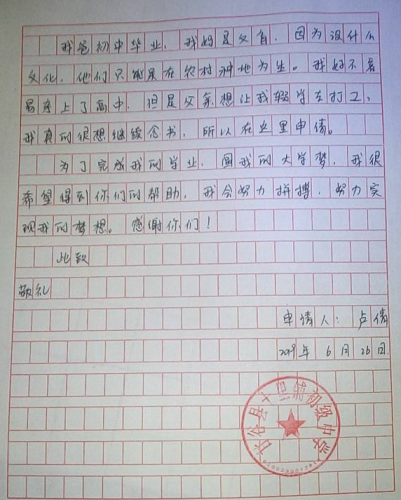 我爸初中毕业，我妈是文盲，因为没什么
文化，他们只能是在农村种地为生。我好不容
易考上了高中，但是父亲想让我辍学去打工，
我真的很想继续念书，所以在这里申请。
为了完成我的学业，圆我的大学梦，我很
希望得到你们的帮助，我会努力拼搏，努力实
现我的梦想。感谢你们！
此致
敬礼
申请人：卢倩
年 6月26日
谷县十里铺初级中学